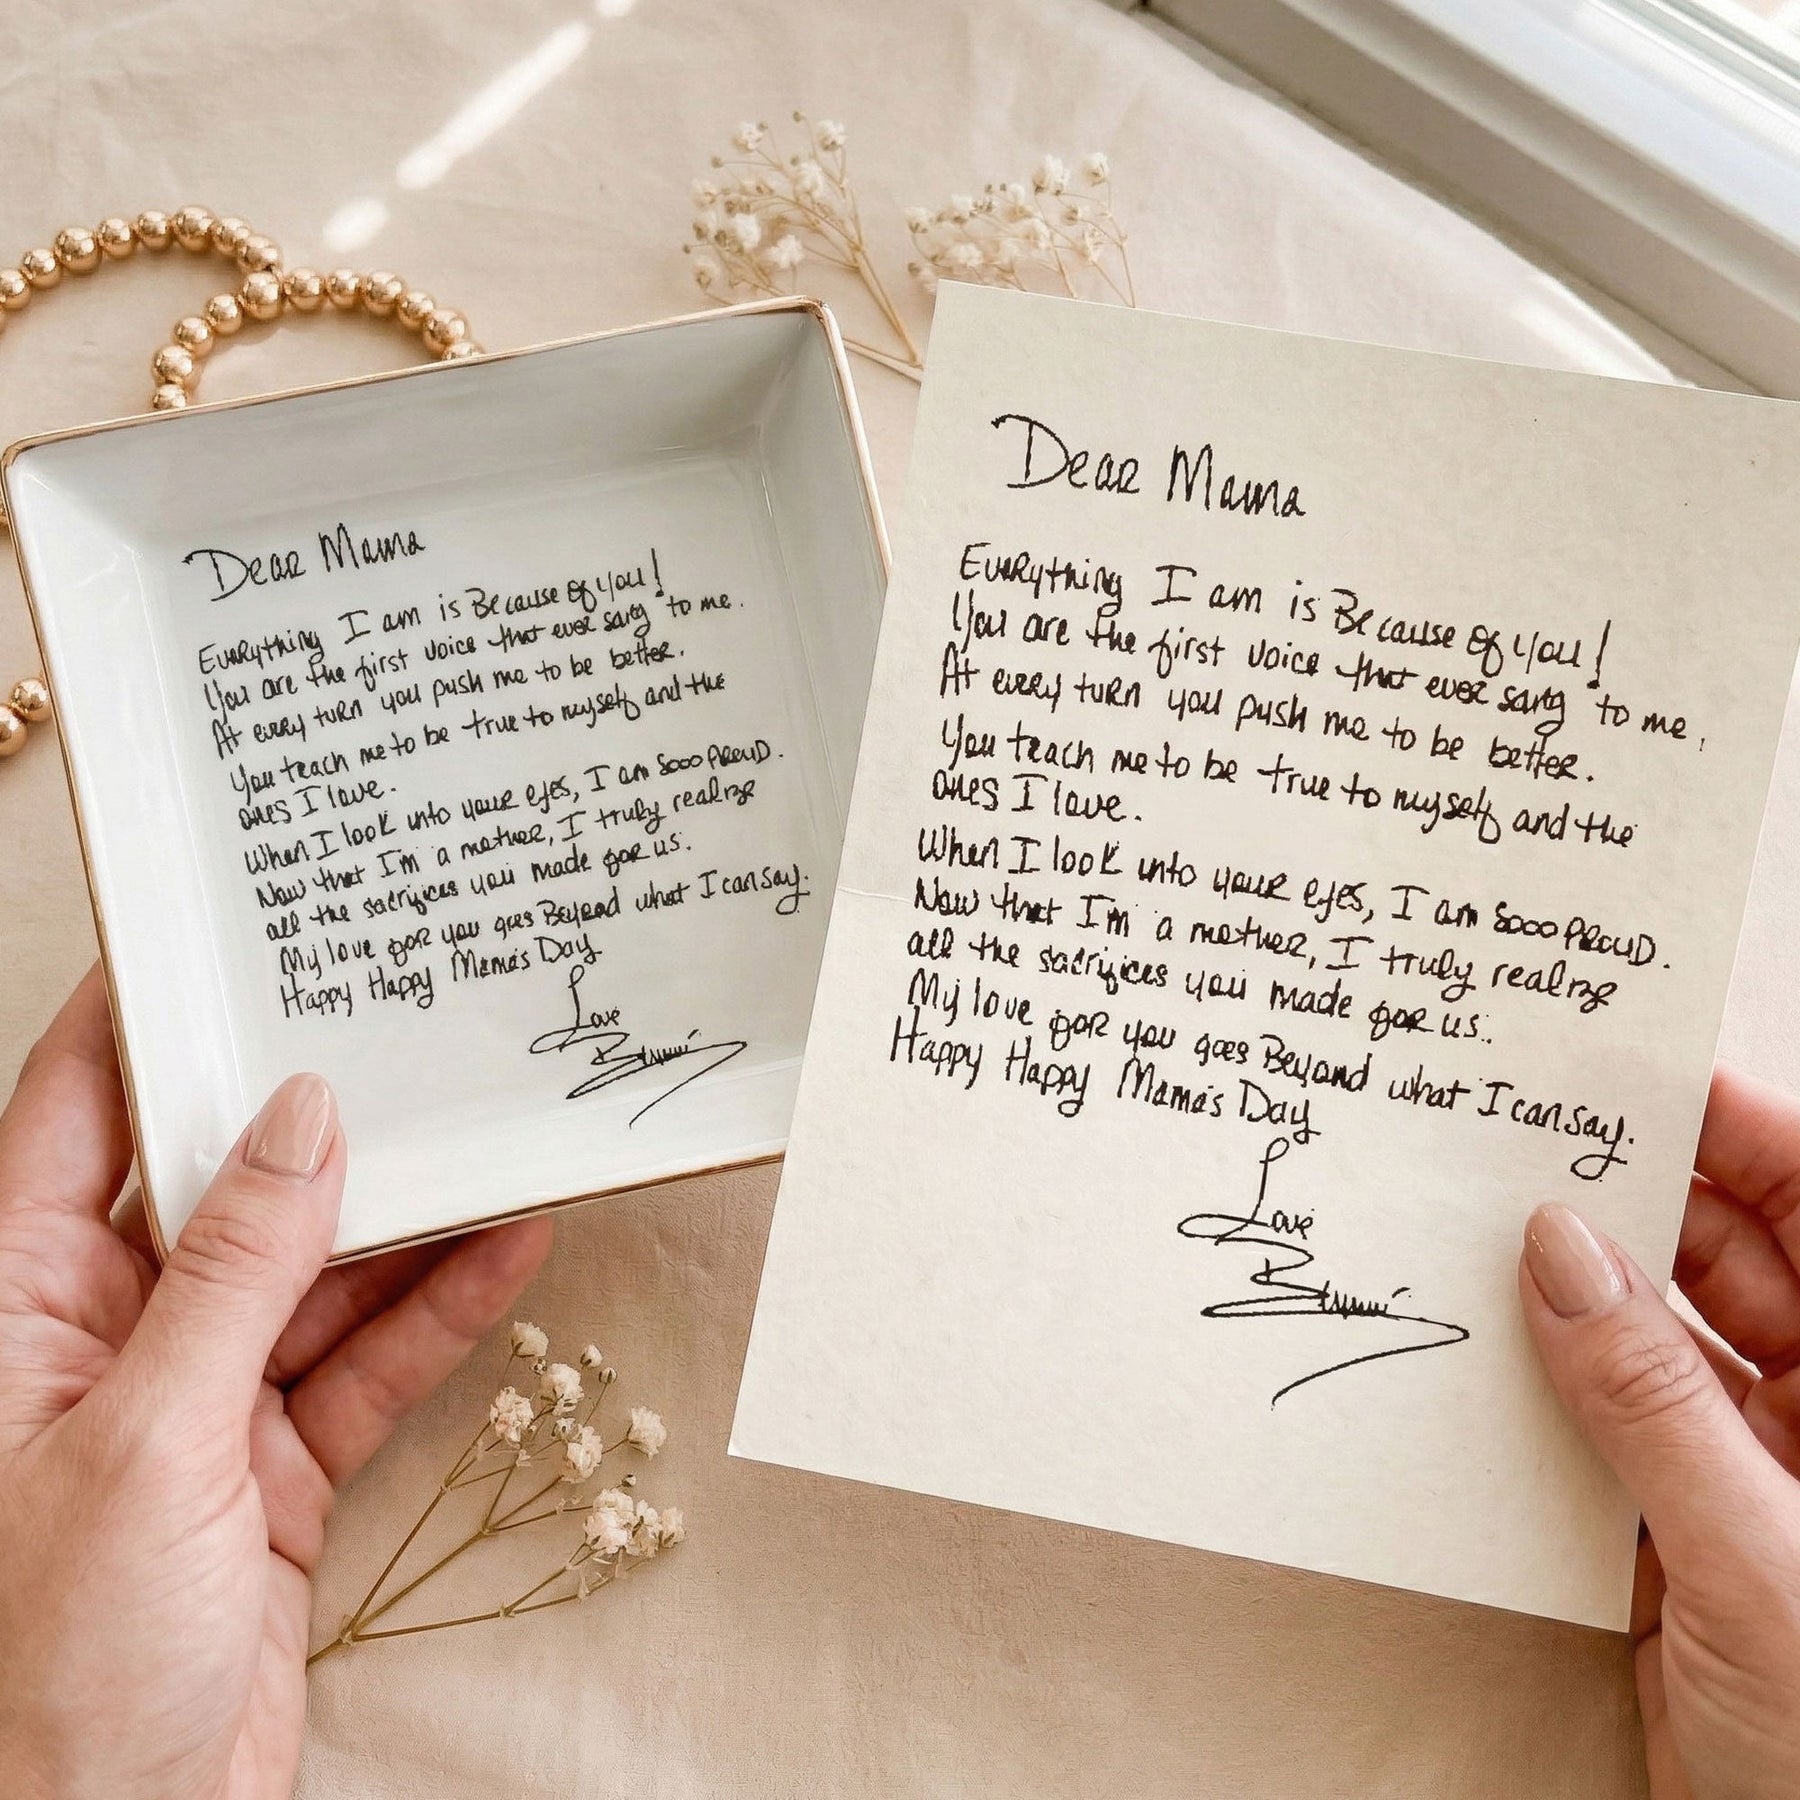 Dear Mama
Everything I am is Because of You!
You are the first voice that ever sang to me.
At every turn you push me to be better.
You teach me to be true to myself and the
ones I love.
When I look into your eyes, I am sooo PROUD.
Now that I'm a mother, I truly realize
all the sacrifices you made for us.
My love for you goes Beyond what I can say.
Happy Happy Mama's Day
Love
Dear Mama
Everything I am is Because of You!
You are the first voice that ever sang to me.
At every turn you push me to be better.
You teach me to be true to myself and the
ones I love.
When I look into your eyes, I am sooo PROUD.
Now that I'm a mother, I truly realize
all the sacrifices you made for us..
My love for you goes Beyond what I can say.
Happy Happy Mama's Day
Love